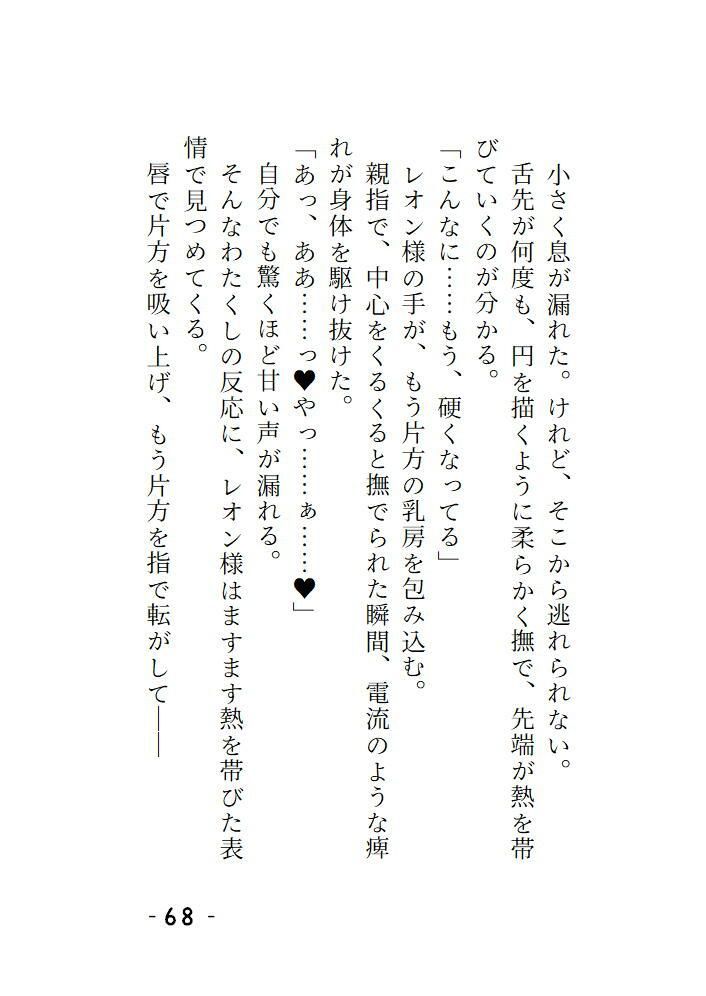 小さく息が漏れた。けれど、そこから逃れられない。
舌先が何度も、円を描くように柔らかく撫で、先端が熱を帯
びていくのが分かる。
「こんなに……もう、硬くなってる」
レオン様の手が、もう片方の乳房を包み込む。
親指で、中心をくるくると撫でられた瞬間、電流のような痺
れが身体を駆け抜けた。
「あっ、ああ……っ♥やっ……ぁ……♥」
自分でも驚くほど甘い声が漏れる。
そんなわたくしの反応に、レオン様はますます熱を帯びた表
情で見つめてくる。
唇で片方を吸い上げ、もう片方を指で転がして――
- 68 -